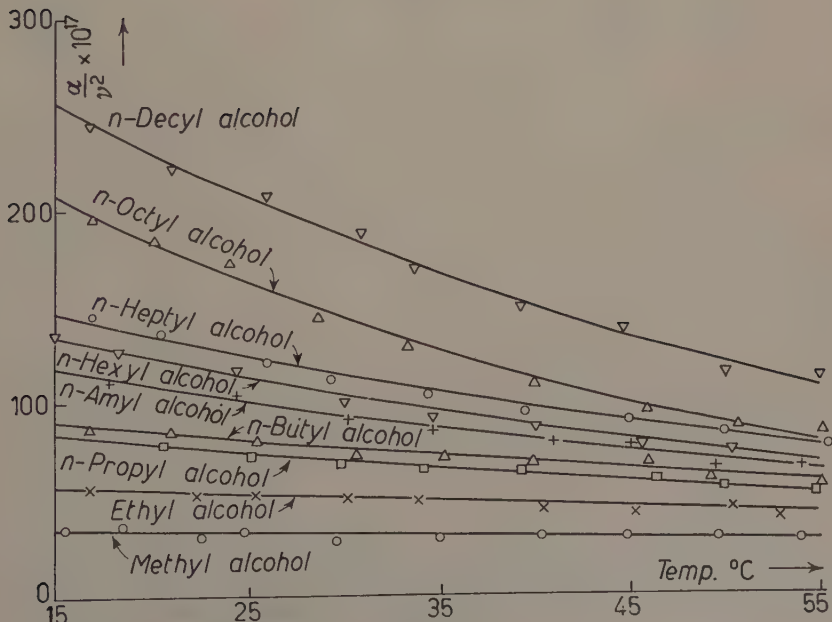 300
α/ν² × 10¹⁷
n-Decyl alcohol
200
n-Octyl alcohol
n-Heptyl alcohol
n-Hexyl alcohol
100
n-Amyl alcohol
n-Butyl alcohol
n-Propyl alcohol
Ethyl alcohol
Methyl alcohol
Temp. °C
0
15
25
35
45
55